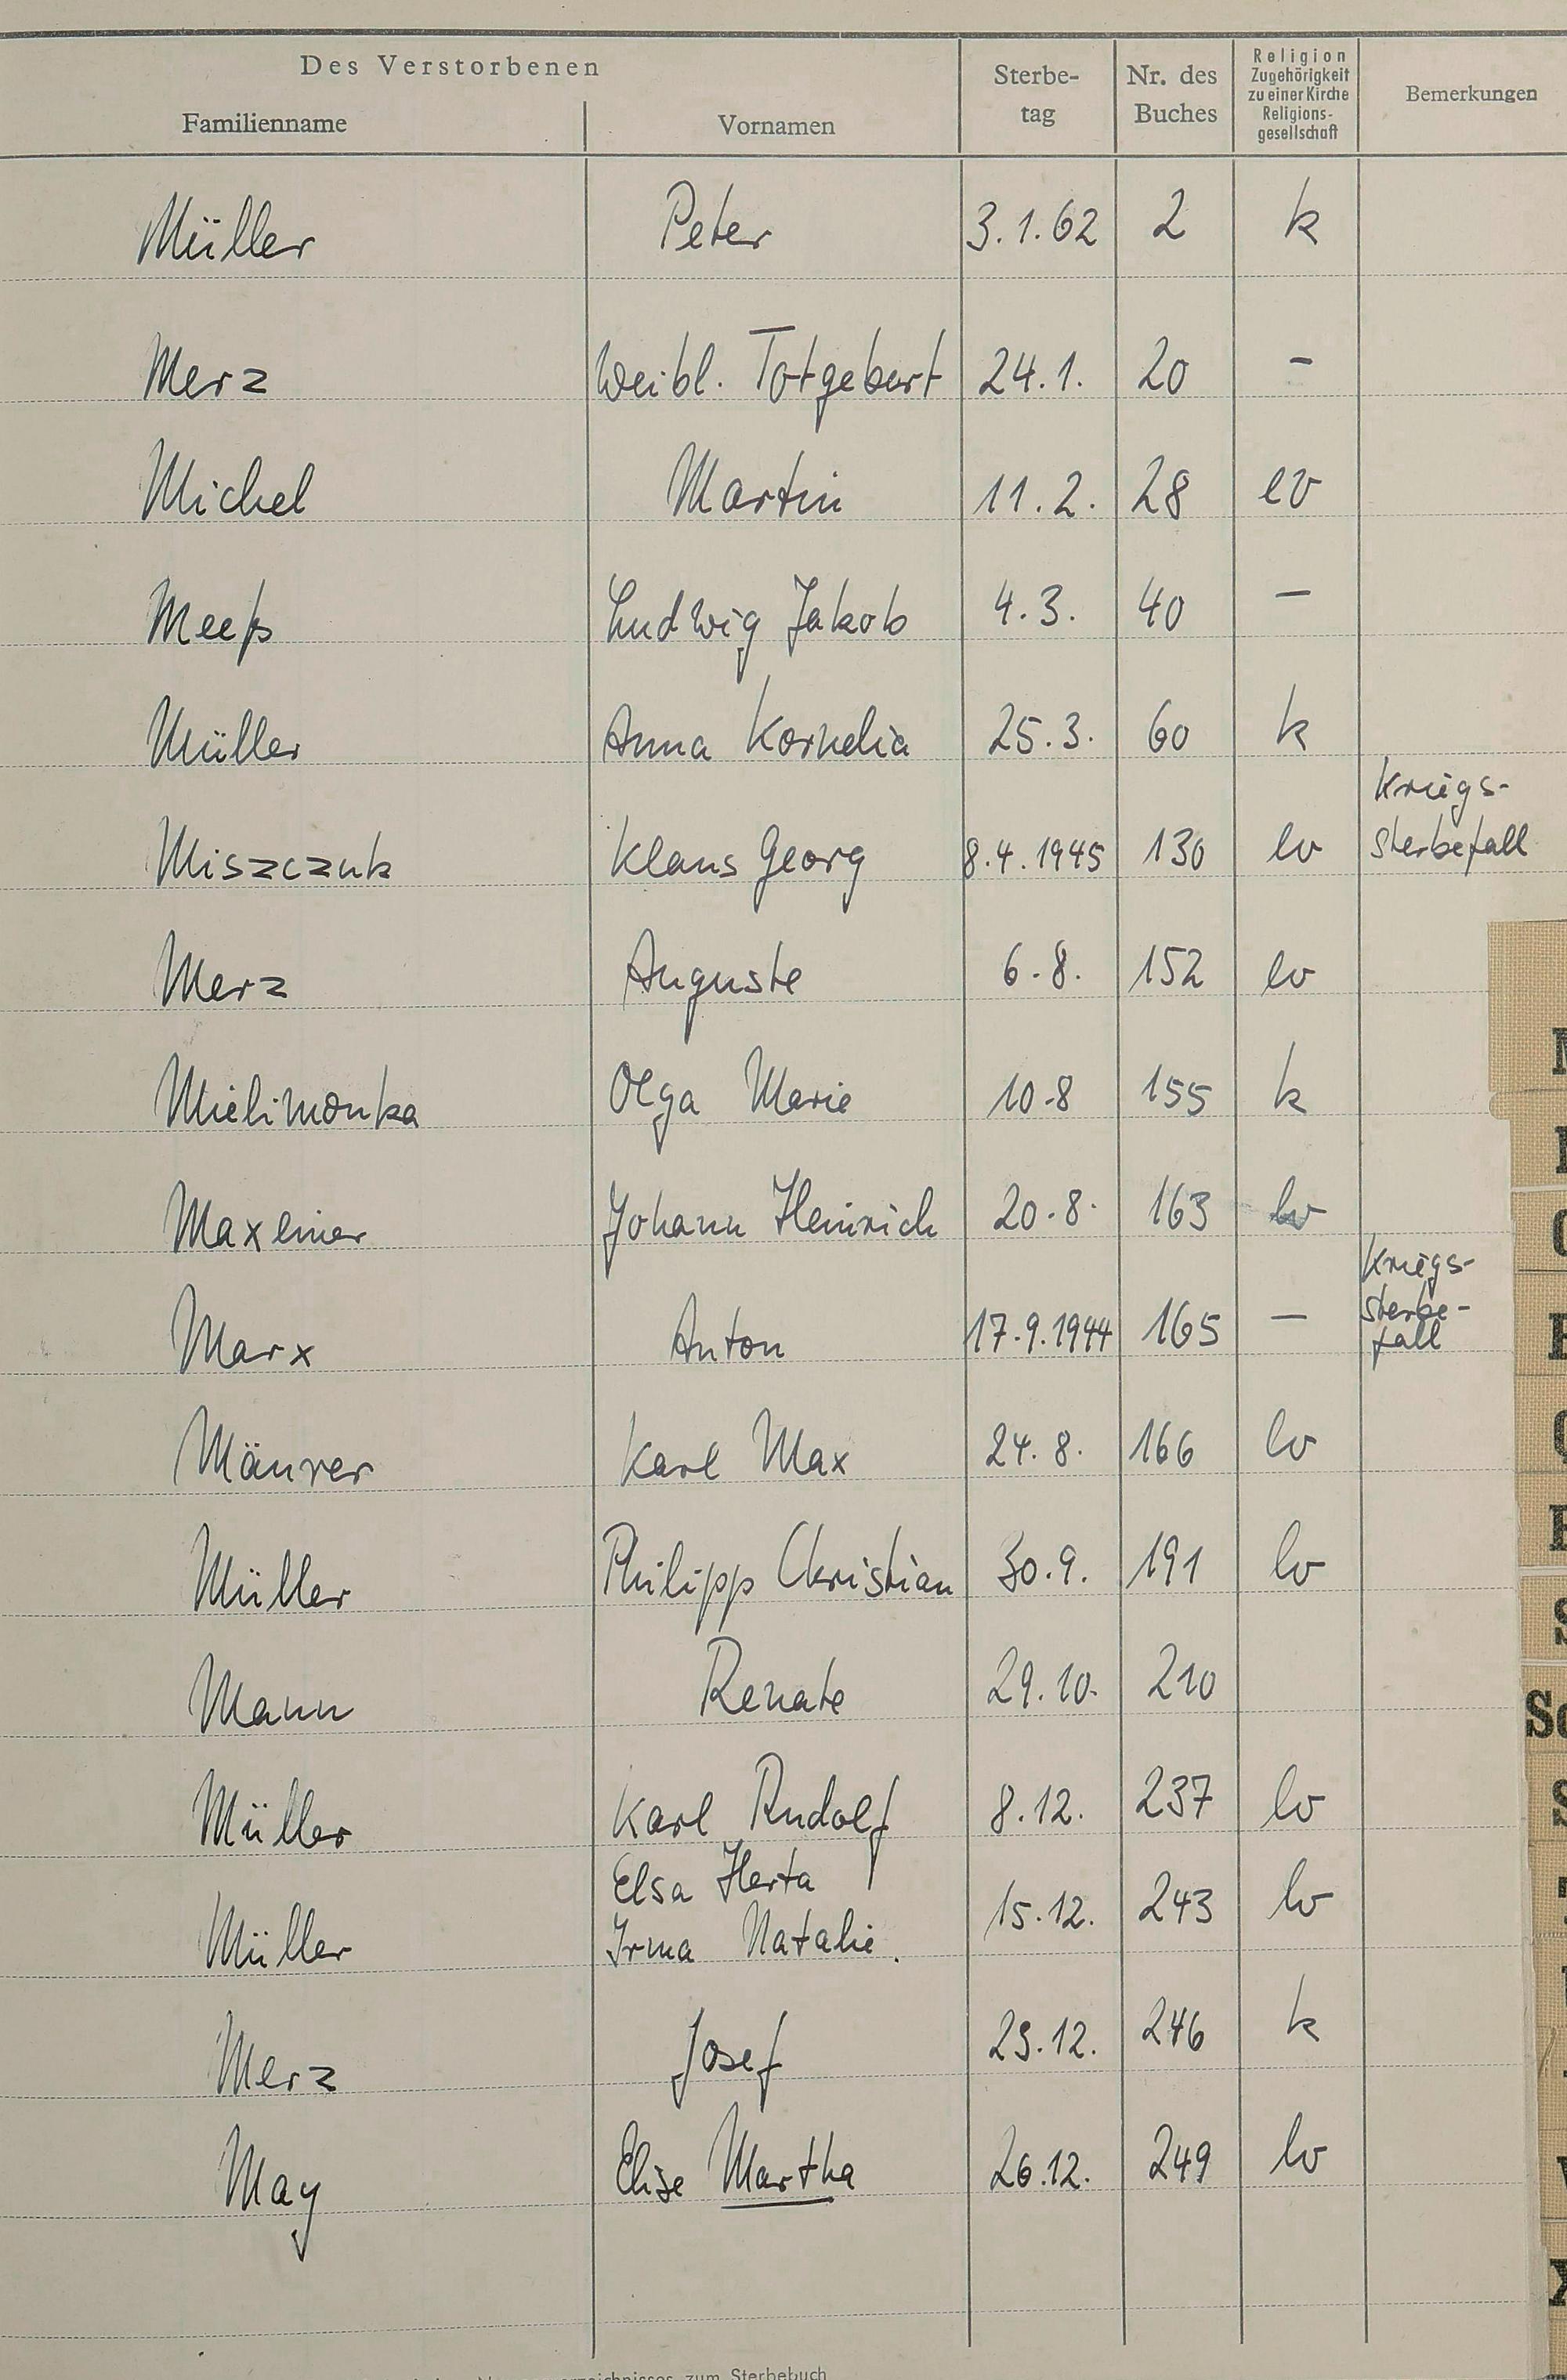 Des Verstorbenen
Familienname Vornamen Sterbe-tag Nr. des Buches Religion Zugehörigkeit zu einer Kirche Religions-gesellschaft Bemerkungen
Müller Peter 3.1.62 2 k
Merz Weibl. Totgeburt 24.1. 20 -
Michel Martin 11.2. 28 ev
Meeß Ludwig Jakob 4.3. 40 —
Müller Anna Kornelia 25.3. 60 k
Kriegs-
Miszczuk Klaus Georg 8.4.1945 130 ev Sterbefall
Merz Auguste 6.8. 152 ev
Mielimonka Olga Marie 10.8 155 k
Maxeiner Johann Heinrich 20.8. 163 ev
Kriegs-
Marx Anton 17.9.1944 165 — Sterbe-
fall
Mäurer Karl Max 24.8. 166 ev
Müller Philipp Christian 30.9. 191 ev
Mann Renate 29.10. 210
Müller Karl Rudolf 8.12. 237 ev
Elsa Herta
Müller Irma Natalie. 15.12. 243 ev
Merz Josef 23.12. 246 k
May Elise Martha 26.12. 249 ev
zum Sterbebuch